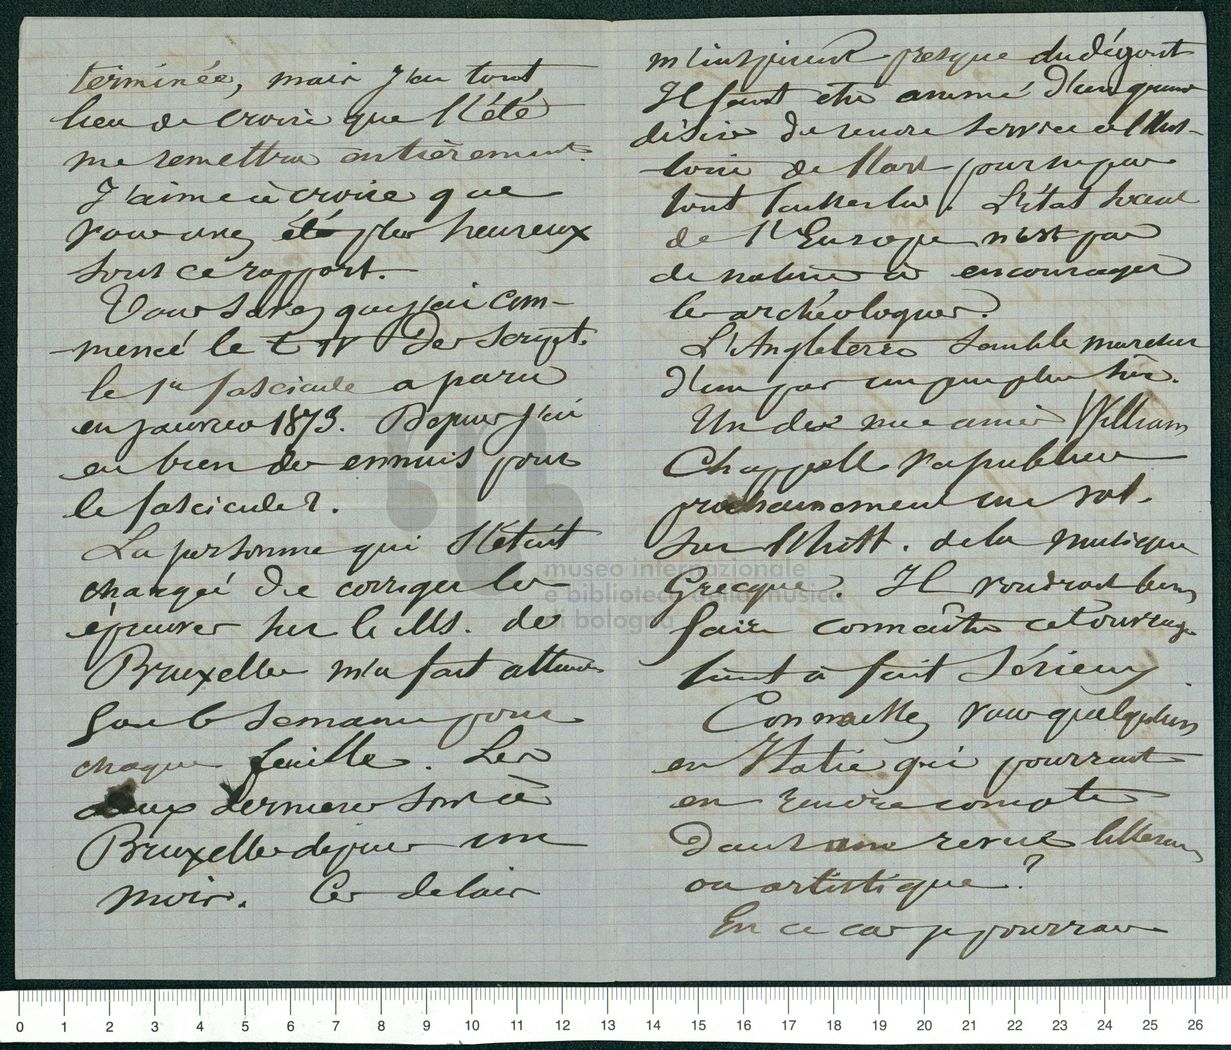 terminée, mais j'ai tout
lieu de croire que l'été
me remettra entièrement.
J'aime à croire que
vous avez été plus heureux
sous ce rapport.
Vous savez que j'ai com-
mencé le t. IV des Script.
le 1er fascicule a paru
en janvier 1873. Depuis j'ai
eu bien des ennuis pour
le fascicule 2.
La personne qui s'était
chargée de corriger les
épreuves sur le Ms. de
Bruxelles m'a fait attendre
6 semaines pour
chaque feuille. Les
deux dernières sont à
Bruxelles depuis un
mois. Ces délais
m'inspirent presque du dégout
Il faut être animé d'un grand
désir de rendre service à l'his-
toire de l'art pour ne pas
tout laisser là. L'état social
de l'Europe n'est pas
de nature à encourager
les archéologues.
L'Angleterre semble marcher
d'un pas un peu plus sûr.
Un de mes amis William
Chappell va publier
prochainement un vol.
sur l'hist. de la musique
Grecque. Il voudrait bien
faire connaître cet ouvrage
tout à fait sérieux.
Connaissez vous quelqu'un
en Italie qui pourrait
en rendre compte
dans une revue littéraire
ou artistique?
En ce cas je pourrais
museo internazionale
e biblioteca della musica
di bologna